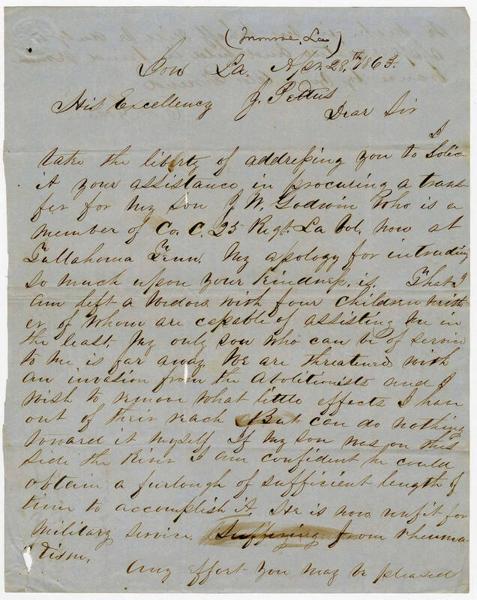 (Monroe, La)
La. Apr. 28th 1863.
His Excellency J. Pettus
Dear Sir
I
take the liberty of addressing you to Solic
it your assistance in procuring a trans
fer for my son J. W. Godwin who is a
member of Co. C. 25 Regt. La Vol. now at
Tullahoma Tenn. My apology for intruding
so much upon your kindness, is. That I
am left a widow with four children neith
er of whom are capable of assisting me in
the least. My only son who can be of service
to me is far away. We are threatened with
an invasion from the Abolitionists and I
wish to remove what little effects I have
out of their reach But can do nothing
toward it myself. If my son was on this
side the River I am confident he could
obtain a furlough of sufficient length of
time to accomplish it. He is now unfit for
Military service Suffering from rheuma
tism.
Any effort you may be pleased